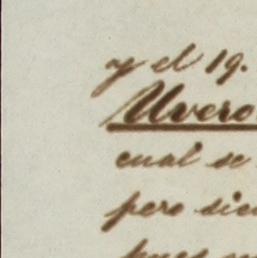 y el 19.
Uvero
cual se
pero sien
pues